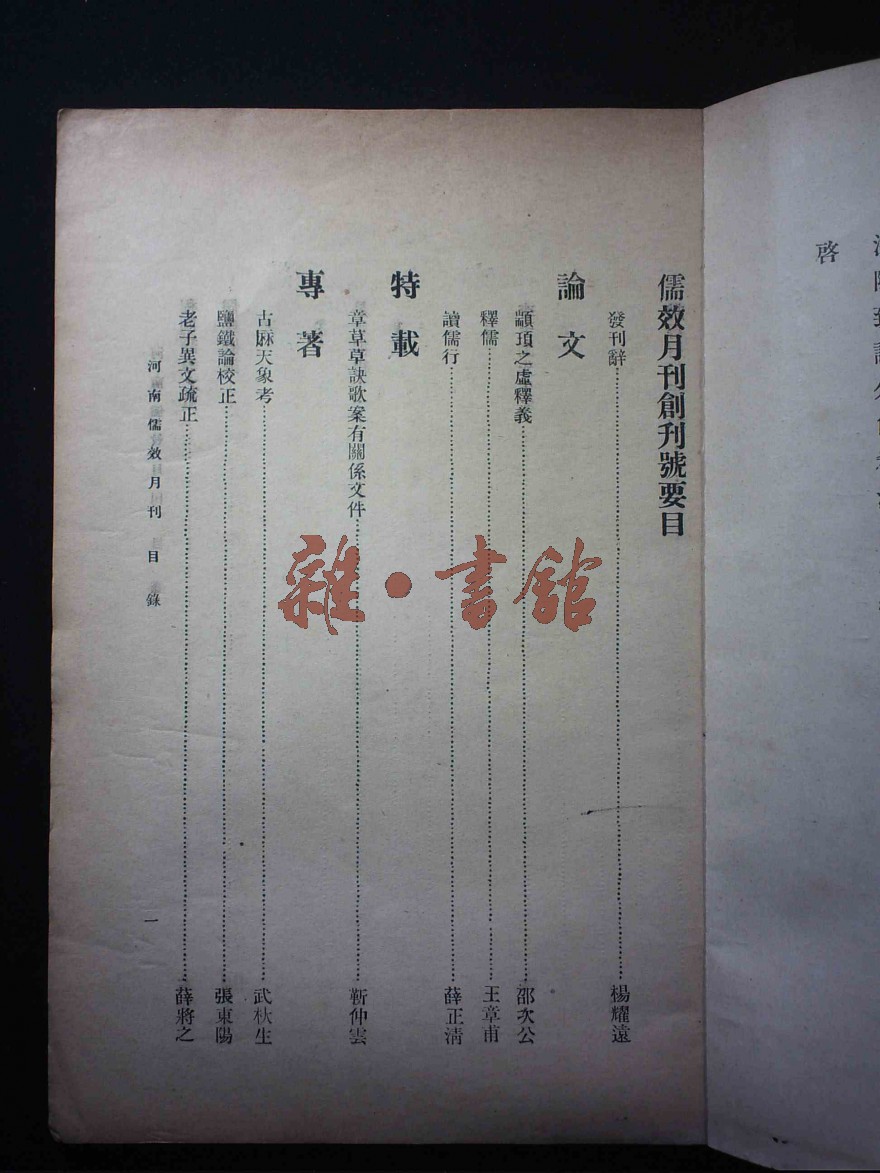 啓
儒效月刊創刊號要目
發刊辭 楊耀遠
論文
顓頊之虛釋義 邵次公
釋儒 王章甫
讀儒行 薛正清
特載
章草草訣歌案有關係文件 靳仲雲
專著
古厤天象考 武秋生
鹽鐵論校正 張東陽
老子異文疏正 薛將之
河南儒效月刊 目錄
一
雜·書館